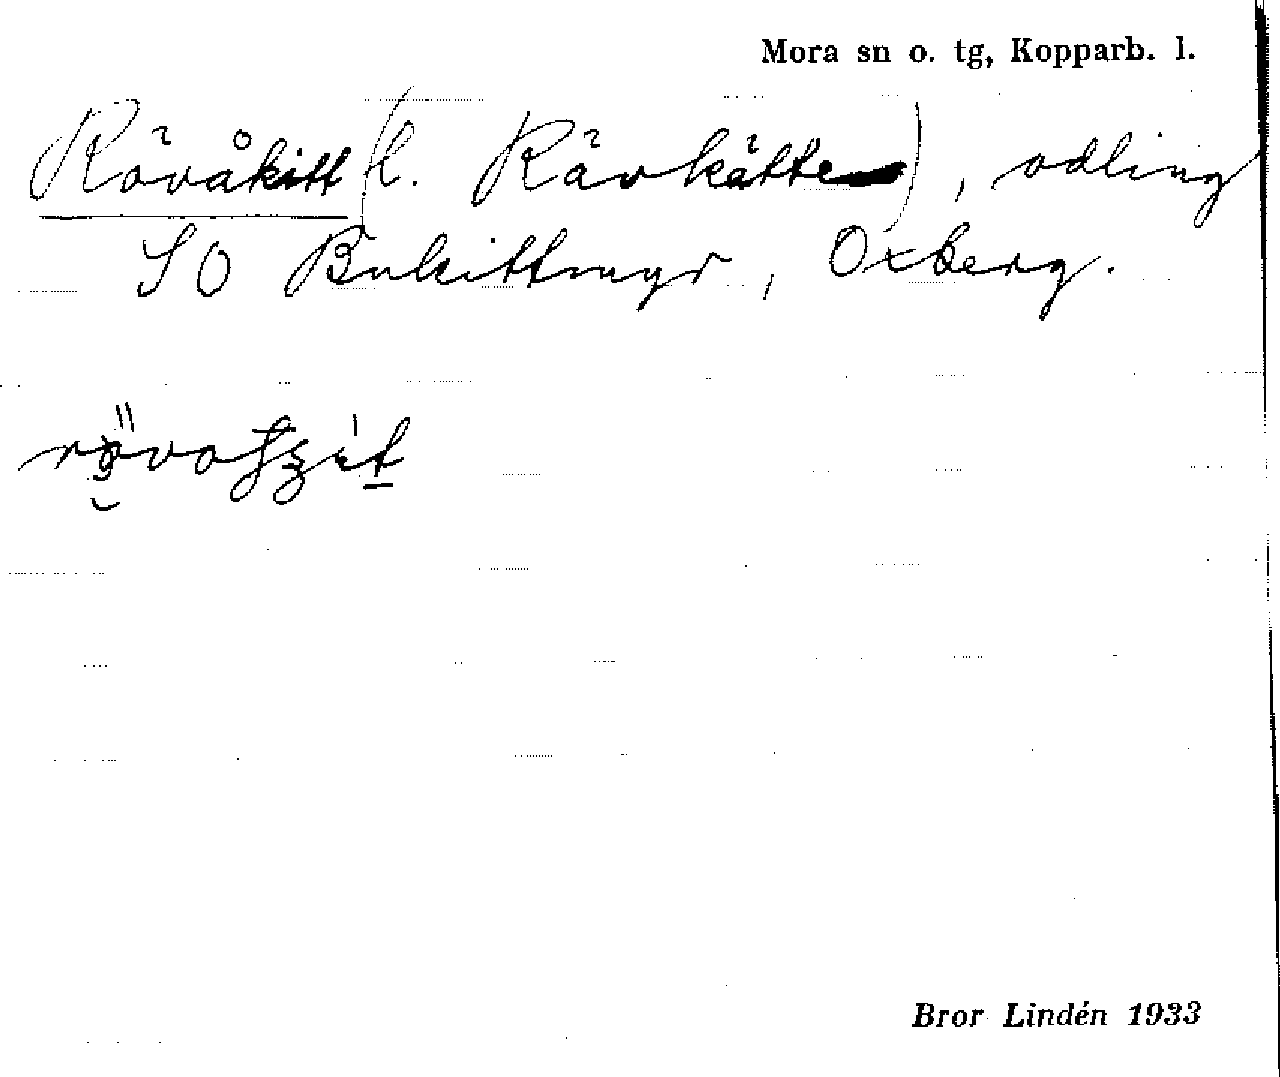 Mora sn o. tg, Kopparb. l.
Rävåkitt (l. Rävkätte), odling
SO Bukittmyr, Oxberg.
Bror Lindén 1933